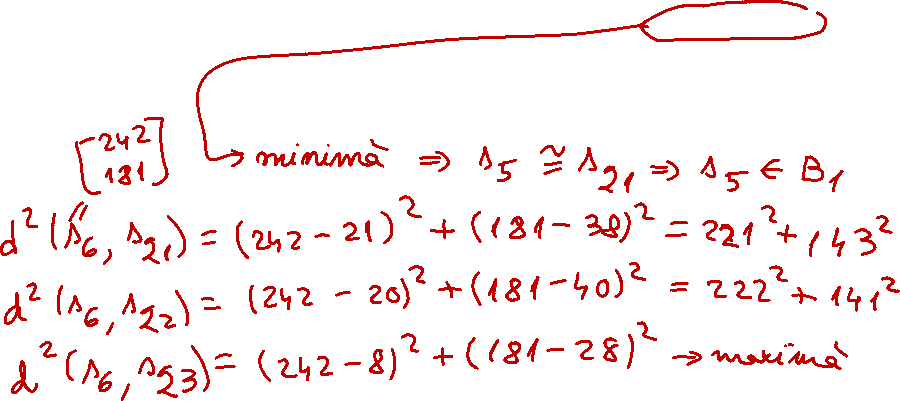 [242 181]
→ minimă ⇒ s₅ ≅ s₂₁ ⇒ s₅ ∈ B₁
d²(s₆, s₂₁) = (242 - 21)² + (181 - 38)² = 221² + 143²
d²(s₆, s₂₂) = (242 - 20)² + (181 - 40)² = 222² + 141²
d²(s₆, s₂₃) = (242 - 8)² + (181 - 28)² → maximă